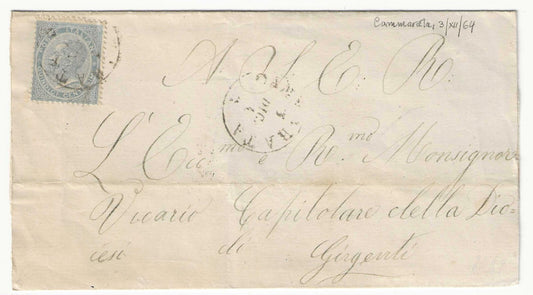 Cammarata, 3/XII/64
A S. E. R.
CAMMARATA
3
DIC
L'Ecc.mo e R.mo Monsignor
Vicario Capitolare della Dio=
cesi di Girgenti